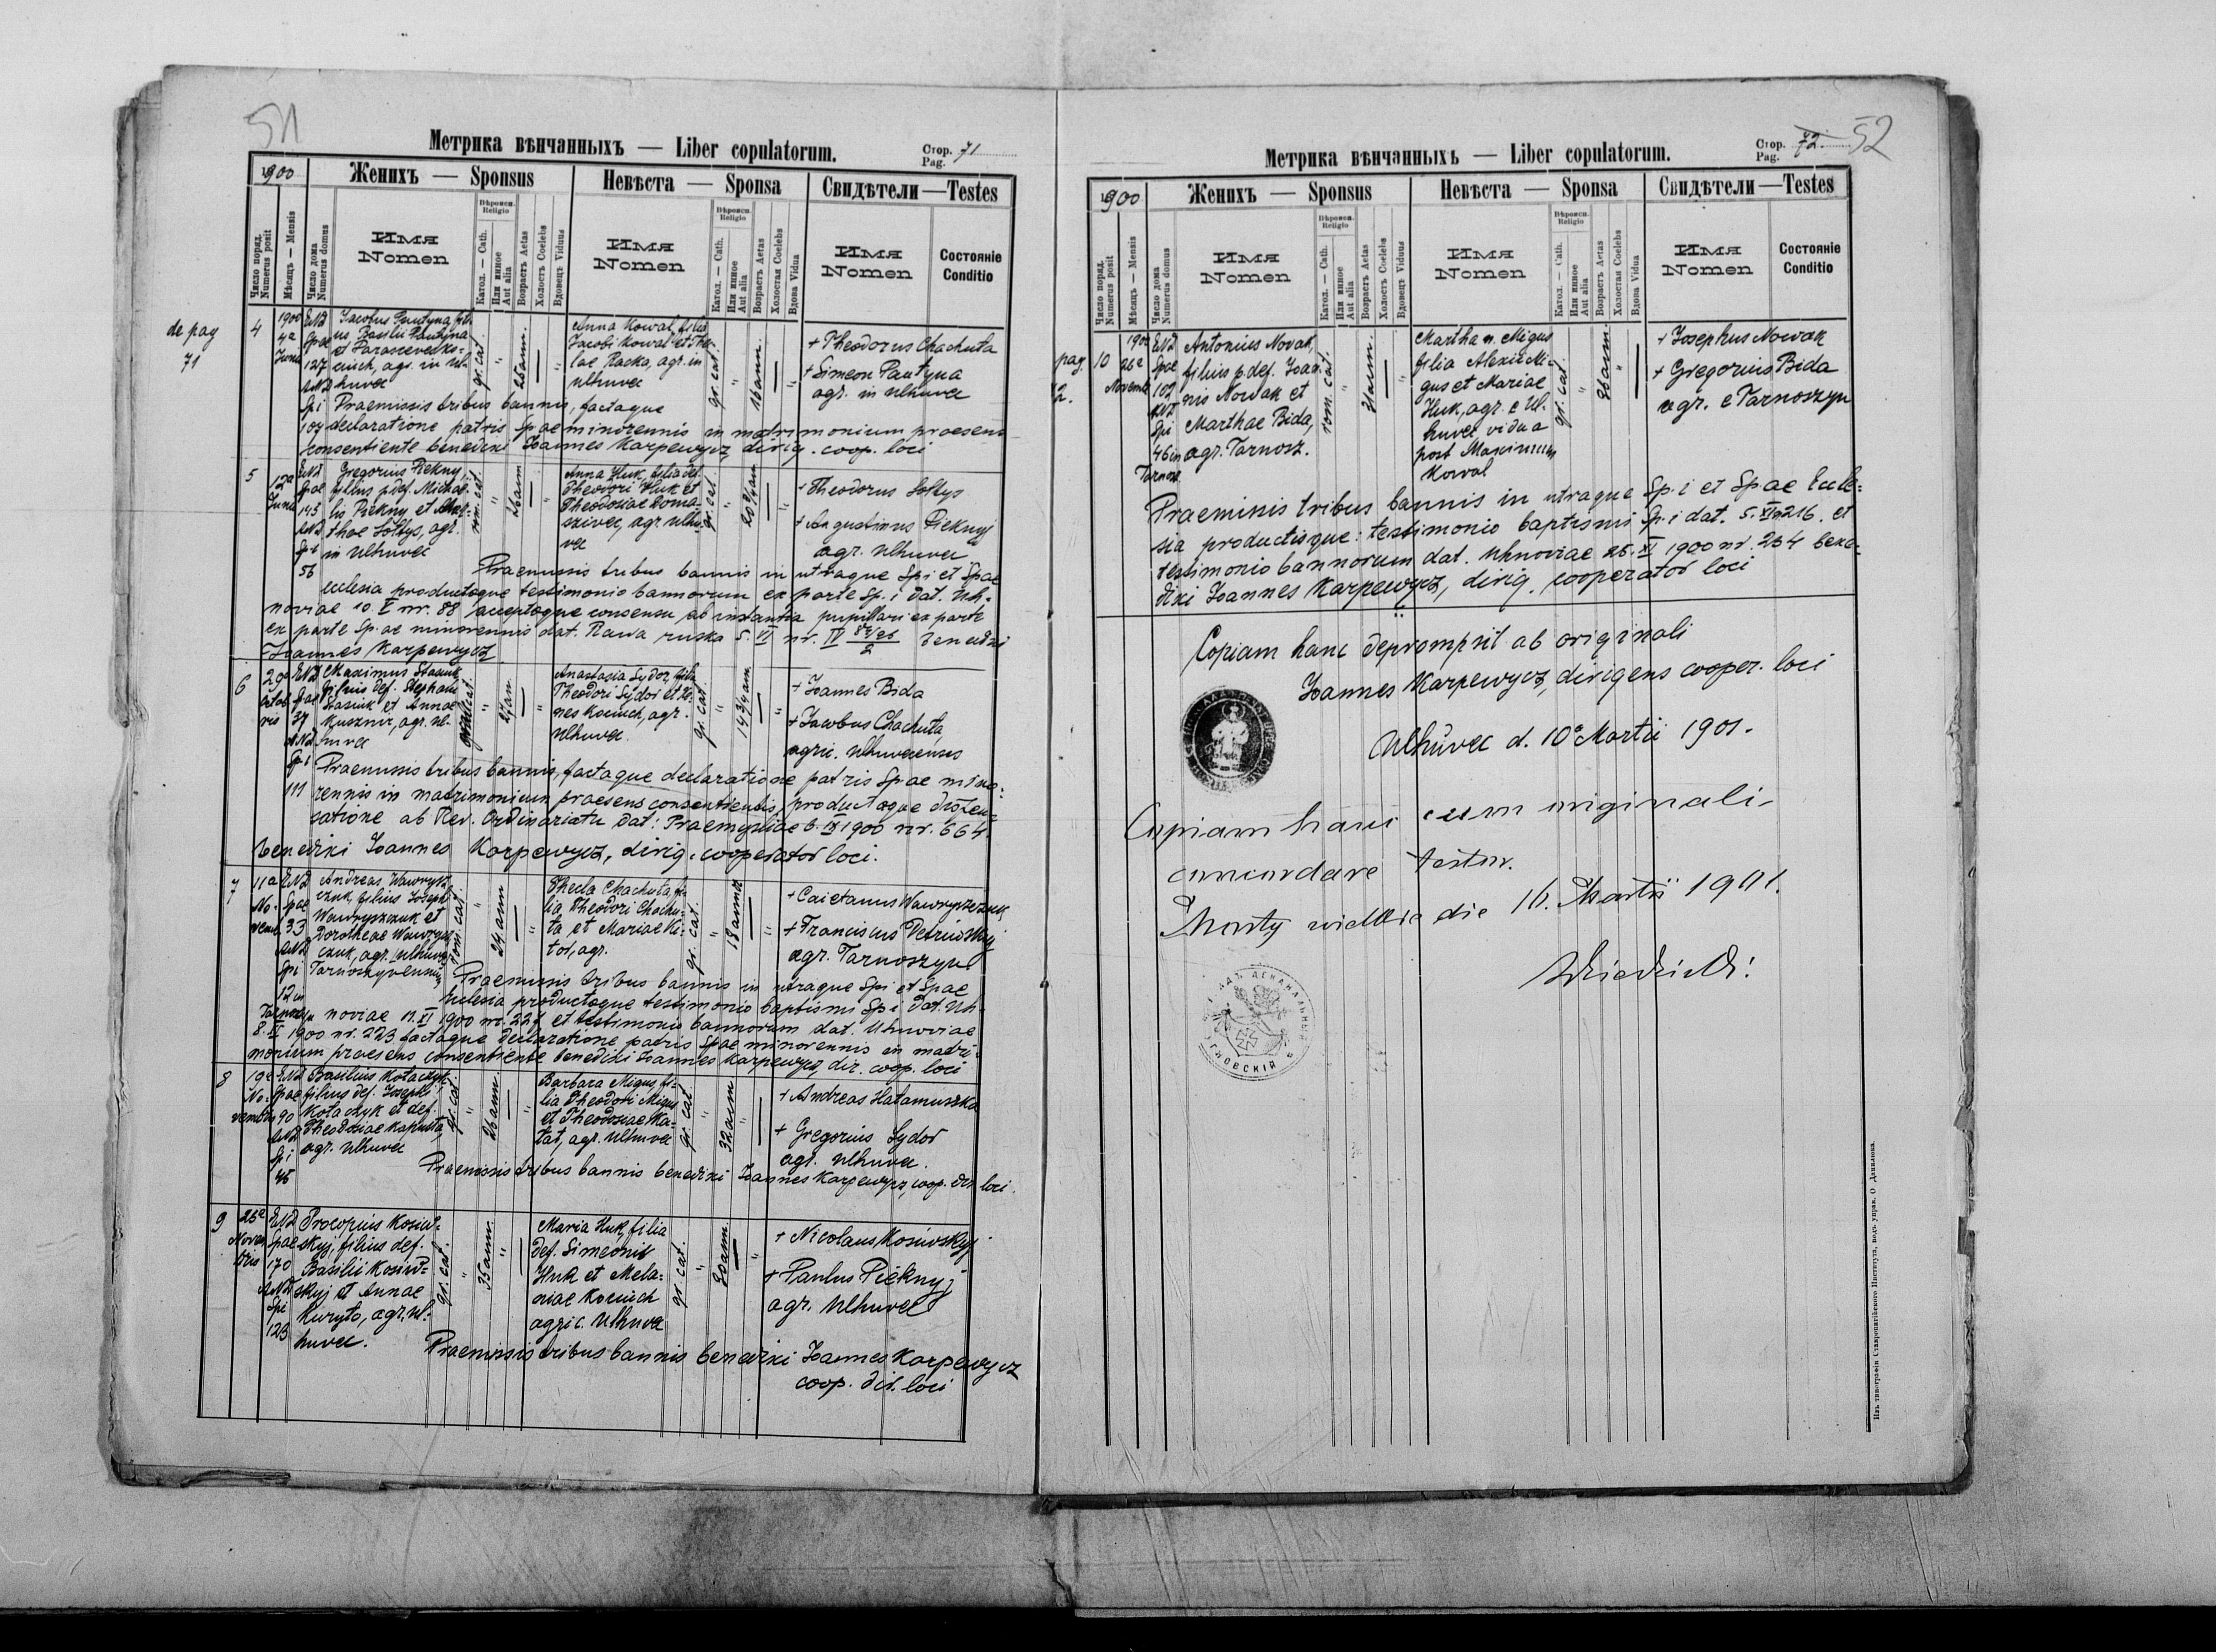 51
Метрика вѣнчанныхъ — Liber copulatorum.
Стор. Pag. 71
1900
Женихъ — Sponsus
Невѣста — Sponsa
Свидѣтели — Testes
Число поряд. Numerus posit
Мѣсяць — Mensis
Число дома Numerus domus
Имя Nomen
Вѣроисп. Religio
Катол. — Cath.
Или инное Aut alia
Возрастъ Aetas
Холость Coelebs
Вдовецъ Viduus
Имя Nomen
Вѣроисп. Religio
Катол. — Cath.
Или инное Aut alia
Возрастъ Aetas
Холостая Coelebs
Вдова Vidua
Имя Nomen
Состояніе Conditio
de pag
71
4
1900
4a
Junii
E No
Spae
127
A No
Spi
107
Jacobus Pautyna fili-
us Basilii Pautyna
et Parascevae Ko-
ciuch, agr. in Ul-
huvec
gr. cat.
"
25 ann.
"
Anna Kowal, filia
Jacobi Kowal et The-
clae Racka, agr. in
Ulhuvec
gr. cat.
"
16 ann.
"
+ Theodorus Chachuta
+ Simeon Pautyna
agr. in Ulhuvec
Praemissis tribus bannis, factaque
declaratione patris Spae minorennis in matrimonium praesens
consentiente benedixi Joannes Karpewycz, dirig. coop. loci
5
12a
Junii
E No
Spae
145
A No
Spi
56
Gregorius Piekny,
filius p. def. Michae-
lis Piekny et Mar-
thae Sołtys, agr.
in Ulhuvec
rom. cat.
"
26 ann
"
Anna Huk, filia def.
Theodori Huk et
Theodosiae Doma-
szivec, agr. Ulhu-
vec
gr. cat
"
20 3/4 ann
"
+ Theodorus Sołtys
+ Augustinus Pieknyj
agr. Ulhuvec
Praemissis tribus bannis in utraque Spi et Spae
ecclesia productoque testimonio bannorum ex parte Sp. i dat. Uh-
noviae 10. V nr. 88 acceptoque consensu ab instantia pupillari ex parte
ex parte Sp. ae minorennis dat. Rawa ruska 5. VI nr. IV benedixi
Joannes Karpewycz
6
29a
Octob
ris
E No
Spae
37
A No
Spi
111
Maximus Stasiuk
filius def. Stephani
Stasiuk et Annae
Kusznir, agr. Ul-
huvec
"
27 an
"
Anastasia Sydor, filia
Theodori Sydor et Ag-
nes Kociuch, agr.
Ulhuvec.
gr. cat.
"
14 3/4 ann
"
+ Joannes Bida
+ Jacobus Chachuta,
agric. Ulhuvecenses
Praemissis tribus bannis, factaque declaratione patris Spae mino-
rennis in matrimonium praesens consentientis, productaque dispen-
satione ab Rev. Ordinariatu dat: Praemysliae 6. IX 1900 nr. 664.
benedixi Joannes Karpewycz, dirig. cooperator loci.
7
11a
No-
vemb.
E No
Spae
33
A No
Spi
12 in
Tarnoszyn
Andreas Wawrysz-
czuk, filius Josephi
Wawryszczuk et
Dorotheae Wawrysz-
czuk, agr. Ulhuvec
Tarnoszynensis
rom. cat
"
24 ann
"
Thecla Chachuta, fi-
lia Theodori Chachu-
ta et Mariae Ki-
tor, agr.
gr. cat.
"
18 annor
"
+ Caietanus Wawryszczuk
+ Franciscus Petriwskyj
agr. Tarnoszyn
Praemissis tribus bannis in utraque Spi et Spae
Ecclesia productoque testimonio baptismi Spi dat. Uh-
noviae 11. XI 1900 nr. 221 et testimonio bannorum dat. Uhnoviae
8. XI 1900 nr. 223 factaque declaratione patris Spae minorennis in matri-
monium praesens consentiente benedixi Joannes Karpewycz, dir. coop. loci
8
19a
No-
vembris
E No
Spae
90
A No
Spi
45
Basilius Kołaczyk
filius def. Josephi
Kołaczyk et def.
Theodosiae Kapusta,
agr. Ulhuvec
gr. cat
"
26 ann.
"
Barbara Migus, fi-
lia Theodori Migus
et Theodosiae Ka-
tat, agr. Ulhuvec
gr. cat
"
32 ann
"
+ Andreas Hatamuszka
+ Gregorius Sydor
agr. Ulhuvec.
Praemissis tribus bannis benedixi Joannes Karpewycz, coop. dir. loci.
9
25a
Novem
bris
E No
Spae
170
A No
Spi
123
Procopius Kosiw-
skyj, filius def.
Basilii Kosiw-
skyj et Annae
Kuryło, agr. Ul-
huvec.
gr. cat.
"
35 ann.
"
Maria Huk, filia
def. Simeonis
Huk et Mela-
niae Kociuch
agric. Ulhuvec
gr. cat.
"
20 ann.
"
+ Nicolaus Kosiwskyj
+ Paulus Pieknyj
agr. Ulhuvec
Praemissis tribus bannis benedixi Joannes Karpewycz
coop. dir. loci
Метрика вѣнчанныхъ — Liber copulatorum.
Стор. Pag. 72
52
1900
Женихъ — Sponsus
Невѣста — Sponsa
Свидѣтели — Testes
Число поряд. Numerus posit
Мѣсяць — Mensis
Число дома Numerus domus
Имя Nomen
Вѣроисп. Religio
Катол. — Cath.
Или инное Aut alia
Возрастъ Aetas
Холость Coelebs
Вдовецъ Viduus
Имя Nomen
Вѣроисп. Religio
Катол. — Cath.
Или инное Aut alia
Возрастъ Aetas
Холостая Coelebs
Вдова Vidua
Имя Nomen
Состояніе Conditio
pag.
2.
10
1900
26a
Novemb
E No
Spae
102
A No
Spi
46 in
Tarnosz.
Antonius Novak,
filius p. def. Joan-
nis Nowak et
Marthae Bida,
agr. Tarnosz.
rom. cat.
"
31 ann.
"
Martha n. Migus
filia Alexii Mi-
gus et Mariae
Huk, agr. e Ul-
huvec, vidua
post Maximum
Kowal
gr. cat.
"
26 ann.
"
+ Josephus Nowak
+ Gregorius Bida
agr. e Tarnoszyn
Praemissis tribus bannis in utraque Sp. i et Spae Eccle-
sia productisque: testimonio baptismi Sp. i dat. 5. XI nr 216. et
testimonio bannorum dat. Uhnoviae 25. XI 1900 nr. 234 bene-
dixi Joannes Karpewycz, dirig. cooperator loci
Copiam hanc deprompsit ab originali
Joannes Karpewycz, dirigens cooper. loci
Ulhuvec d. 10a Martii 1901.
Copiam hanc cum originali
concordare testor.
Mosty wielkie die 16. Martii 1901.
Изъ типографіи Ставропигійского Института, водъ управ. О. Данилюка.